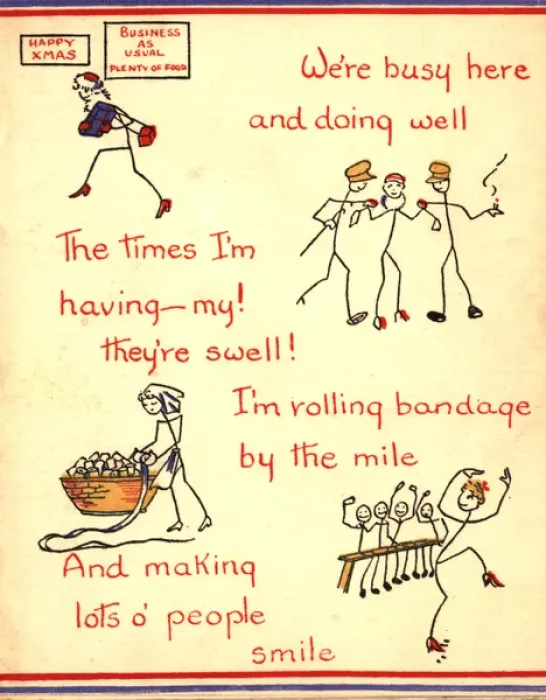 HAPPY
XMAS
BUSINESS
AS
USUAL
PLENTY OF FOOD
We're busy here
and doing well
The times I'm
having—my!
they're swell!
I'm rolling bandage
by the mile
And making
lots o' people
smile